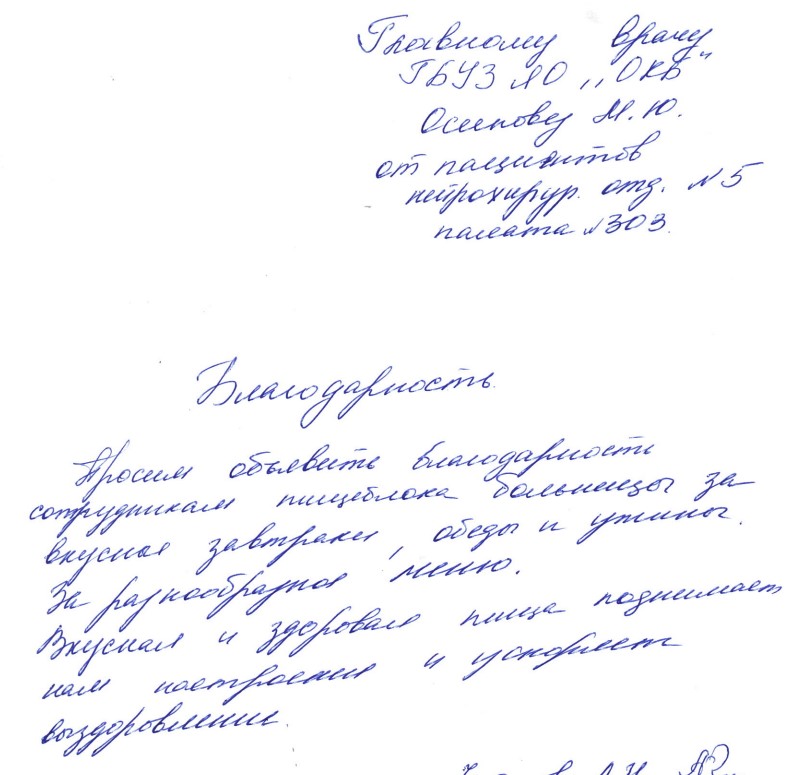 Главному врачу
ГБУЗ ЯО „ОКБ"
Осипову М.Ю.
от пациентов
нейрохирур. отд. №5
палата №303.
Благодарность.
Просим объявить благодарность
сотрудникам пищеблока больницы за
вкусные завтраки, обеды и ужины.
За разнообразное меню.
Вкусная и здоровая пища поднимает
нам настроение и ускоряет
выздоровление.